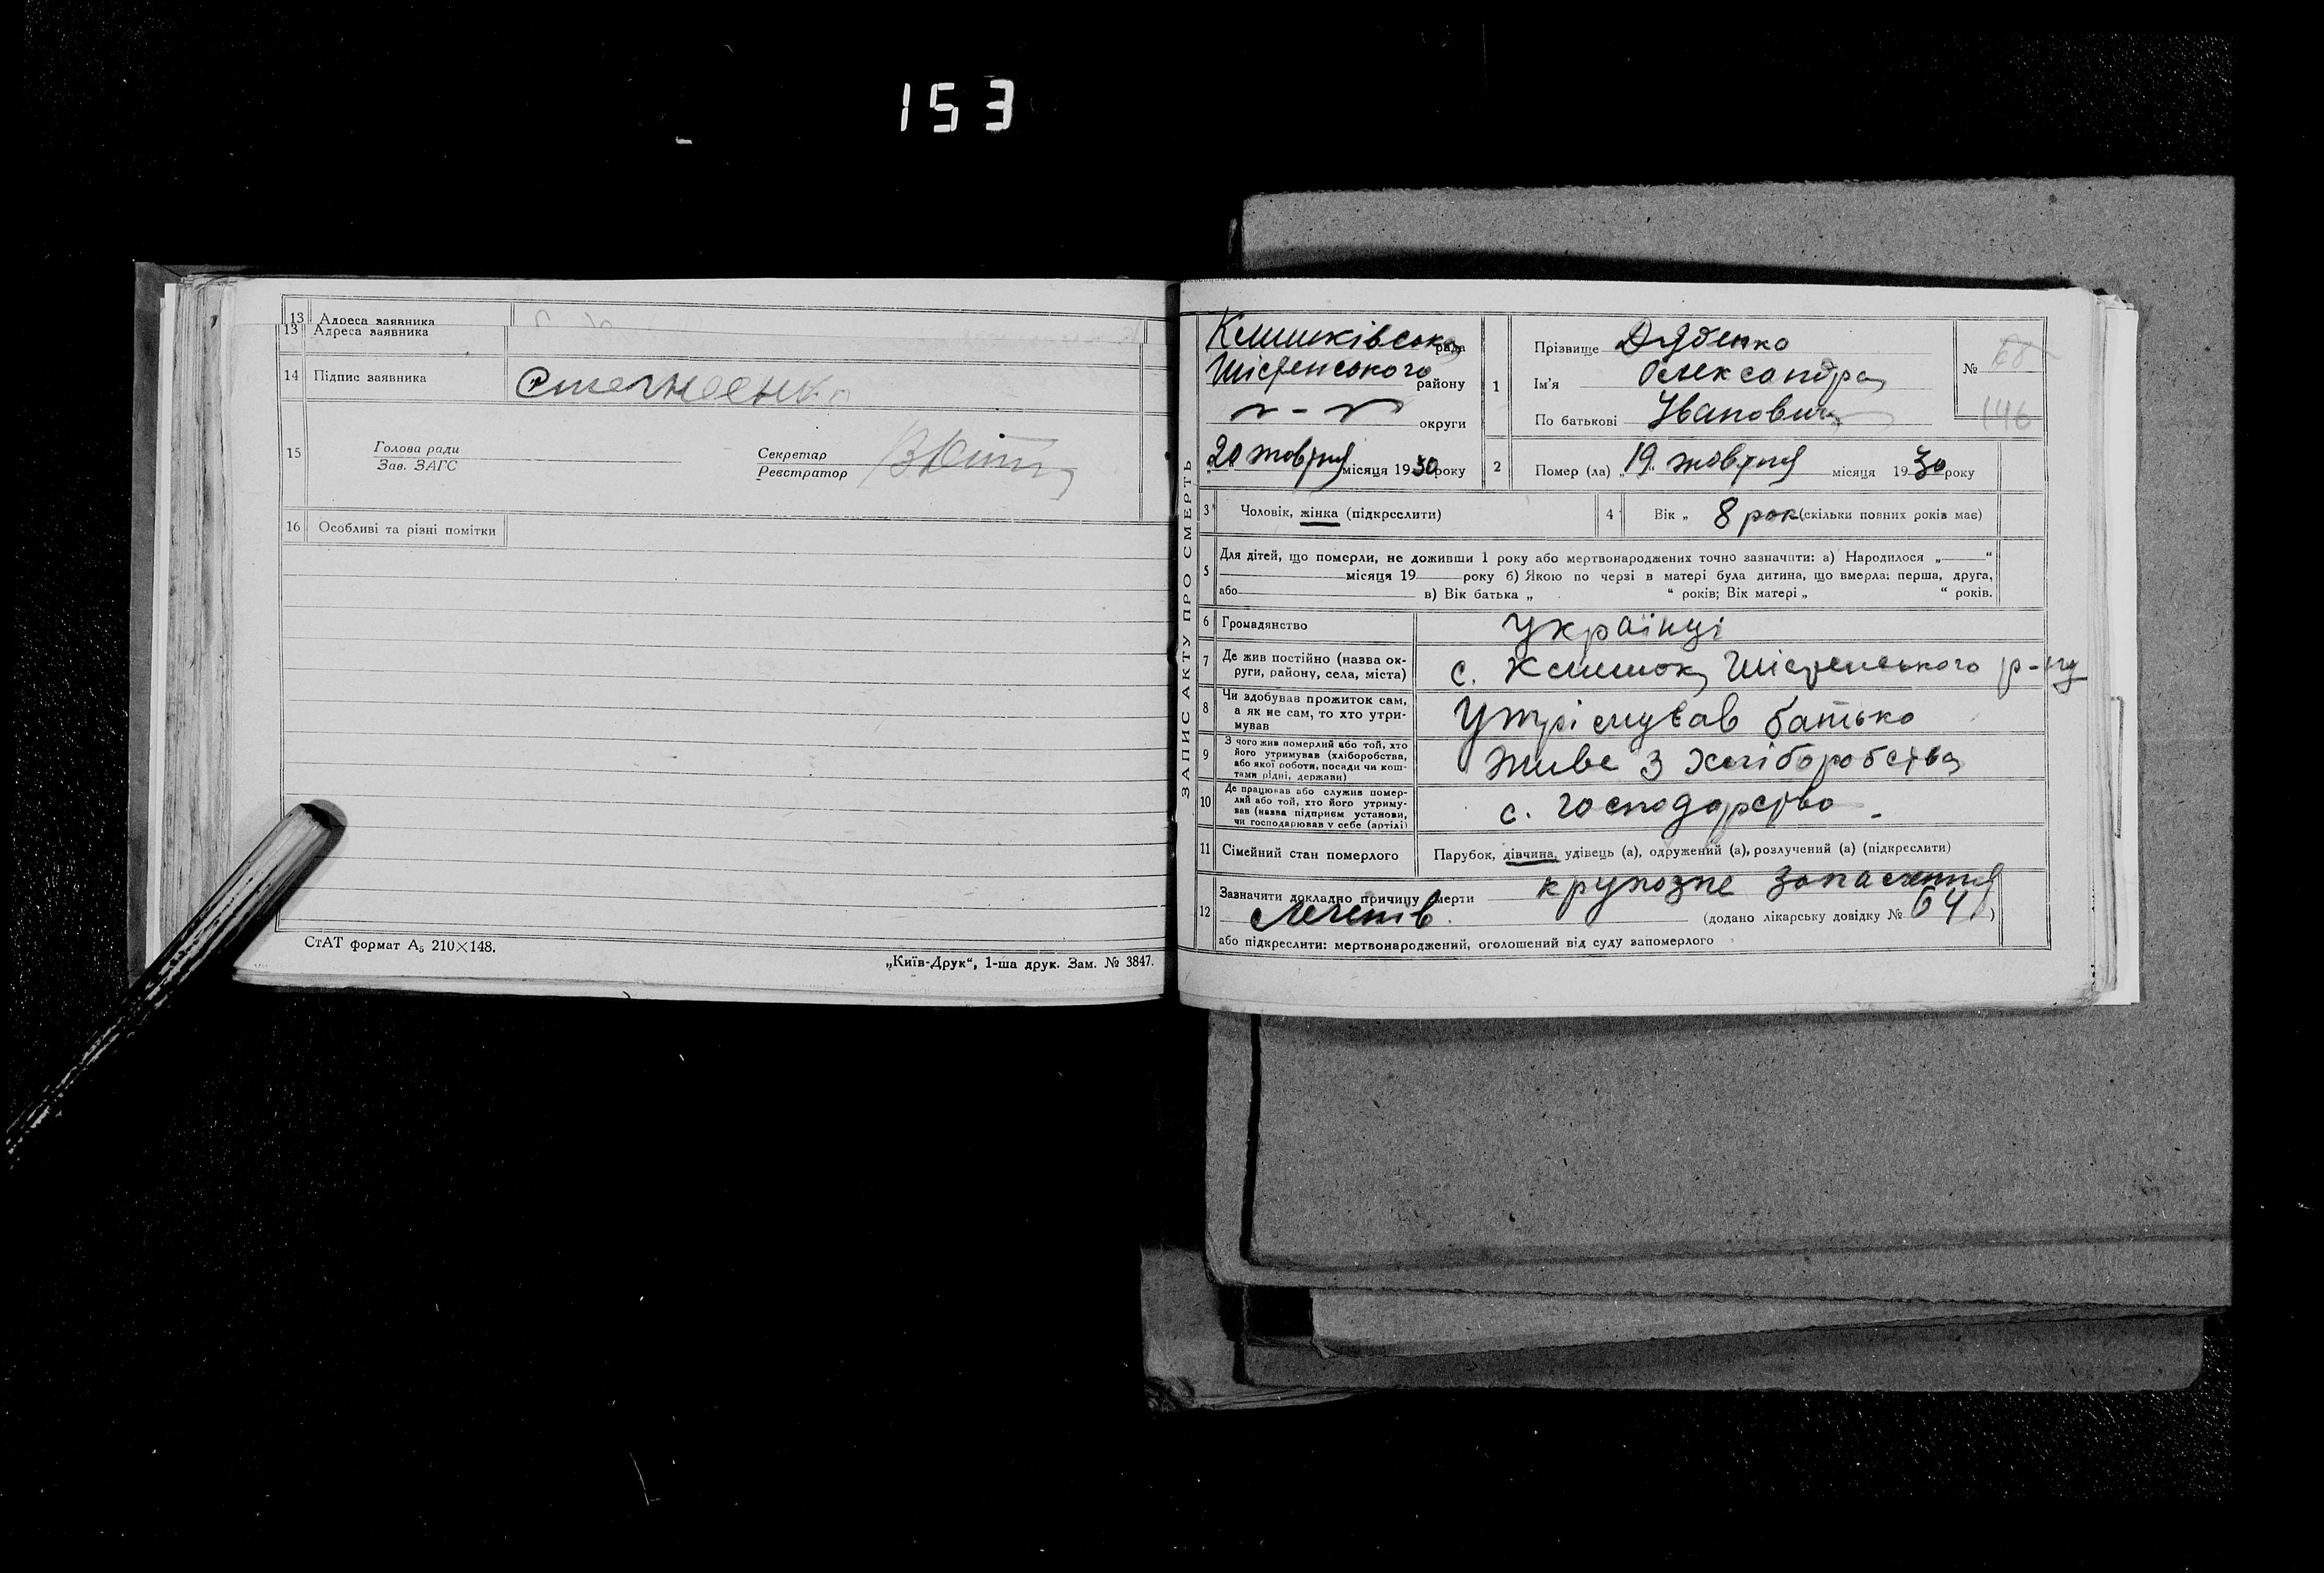 153
13 Адреса заявника
13 Адреса заявника
14 Підпис заявника
15 Голова ради Зав. ЗАГС Секретар Реєстратор
16 Особливі та різні помітки
СтАТ формат А₅ 210×148.
„Київ-Друк“, 1-ша друк. Зам. № 3847.
ЗАПИС АКТУ ПРО СМЕРТЬ
Клишківська рада
району
округи
20 жовтня місяця 1930 року
1 Прізвище Дяденко
Ім'я Олександра
По батькові Івановича
№ 68
146
2 Помер (ла) „19“ жовтня місяця 1930 року
3 Чоловік, жінка (підкреслити)
4 Вік „ 8 рок (скільки повних років має)
5 Для дітей, що померли, не доживши 1 року або мертвонароджених точно зазначити: а) Народилося „ “
місяця 19 року б) Якою по черзі в матері була дитина, що вмерла: перша, друга,
або в) Вік батька „ “ років; Вік матері „ “ років.
6 Громадянство українці
7 Де жив постійно (назва ок-
руги, району, села, міста) с. Клишок, р-ну
8 Чи здобував прожиток сам,
а як не сам, то хто утри-
мував Утрімував батько
9 З чого жив померлий або той, хто
його утримував (хліборобства,
або якої роботи, посади чи кош-
тами рідні, держави) Живе з хліборобства
10 Де працював або служив помер-
лий або той, хто його утриму-
вав (назва підприєм установи,
чи господарював у себе (артілі) с. господарство
11 Сімейний стан померлого Парубок, дівчина, удівець (а), одружений (а), розлучений (а) (підкреслити)
12 Зазначити докладно причину смерти крупозне запалення
легенів (додано лікарську довідку № 641)
або підкреслити: мертвонароджений, оголошений від суду запомерлого